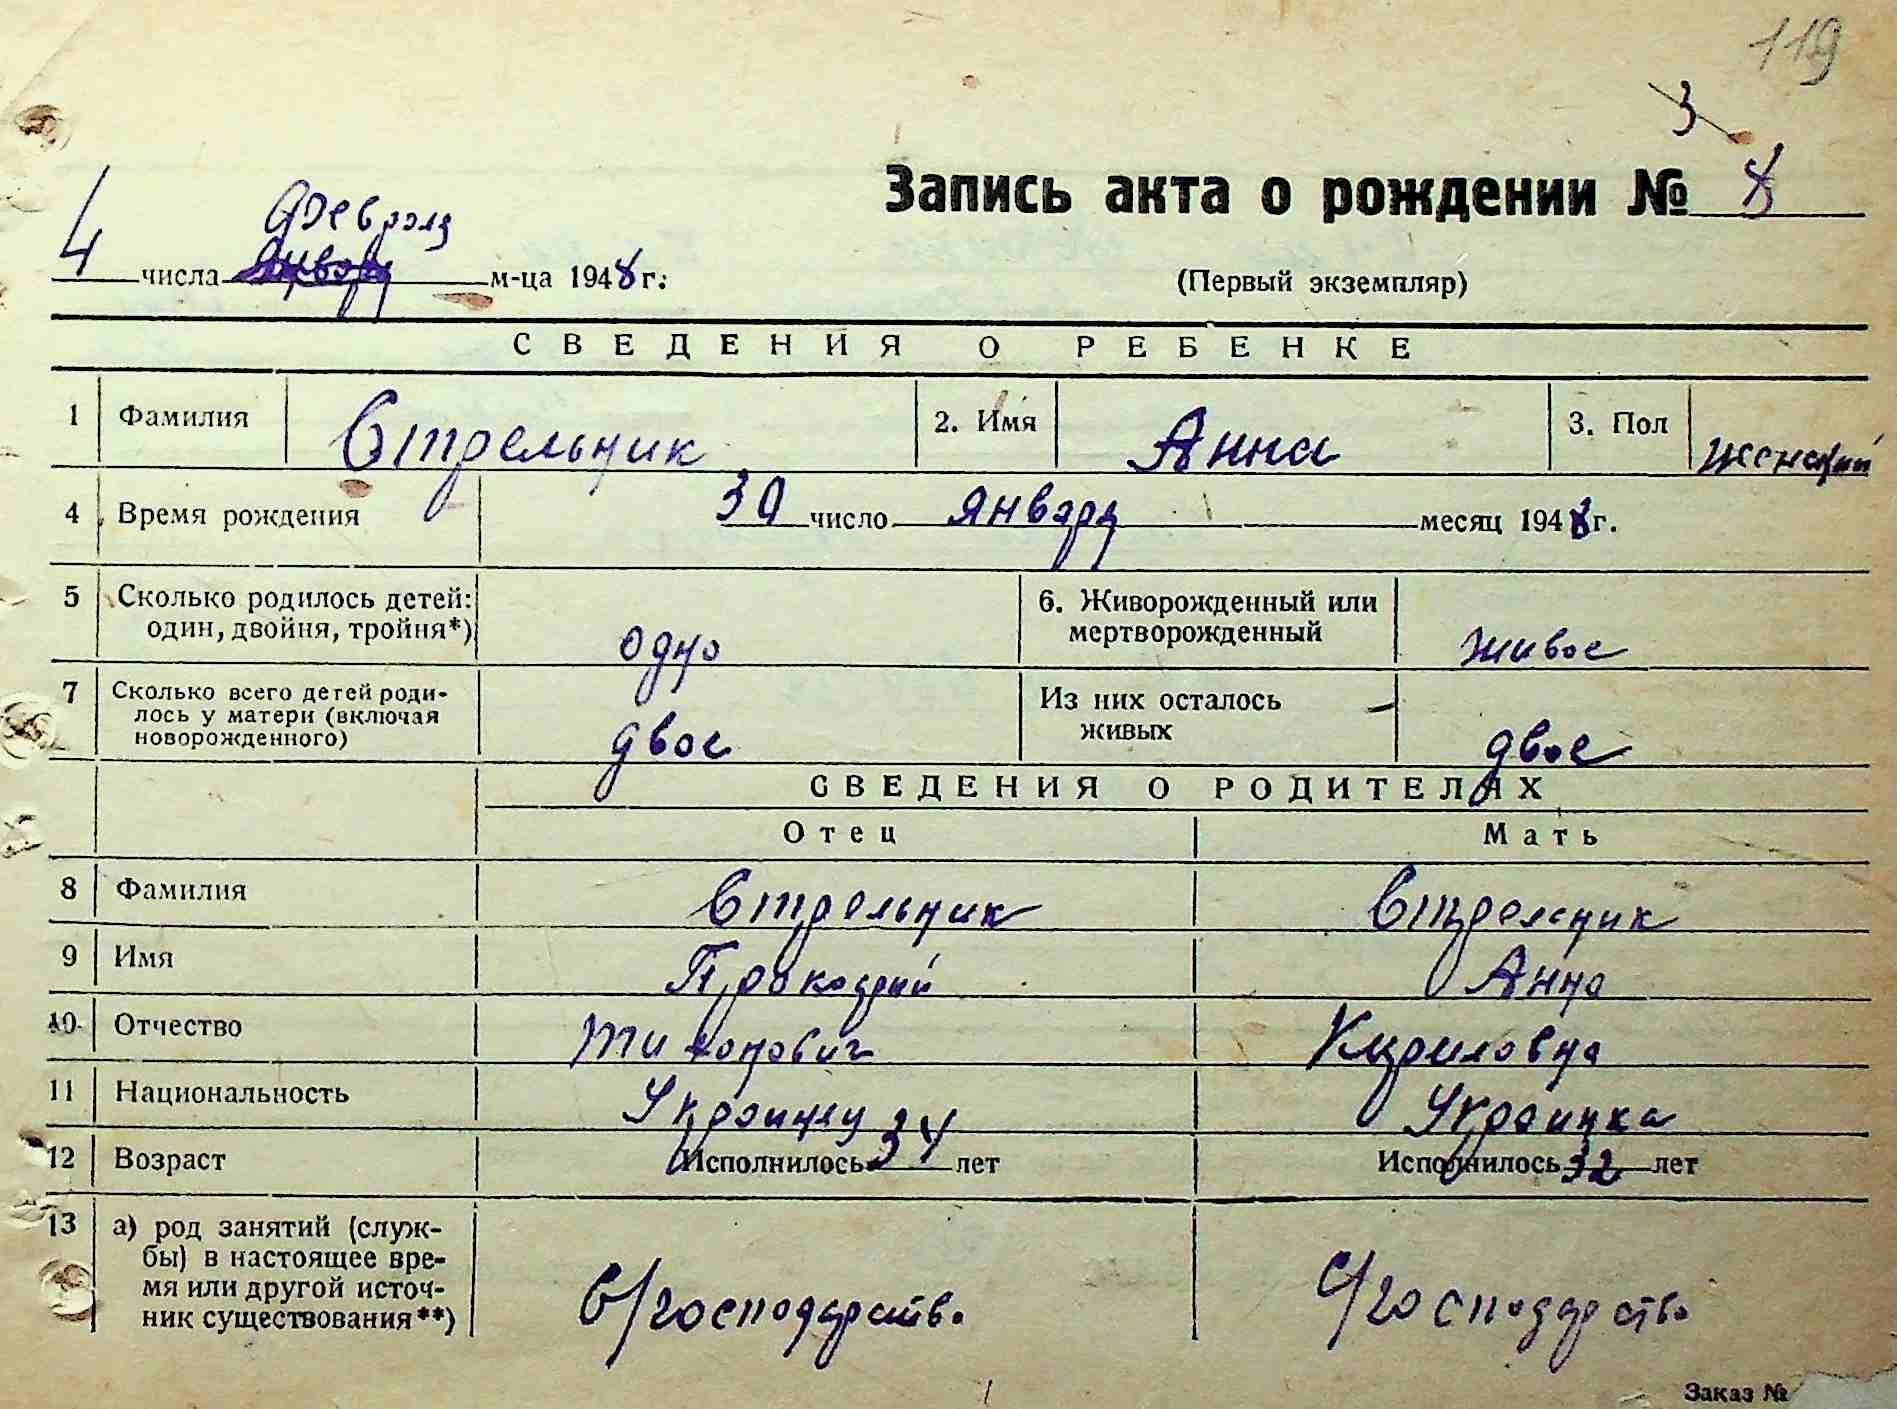 119
3
Запись акта о рождении № 8
февраля
4 числа января м-ца 1948 г.
(Первый экземпляр)
СВЕДЕНИЯ О РЕБЕНКЕ
1 Фамилия Стрельник 2. Имя Анна 3. Пол женский
4 Время рождения 30 число января месяц 1948 г.
5 Сколько родилось детей: один, двойня, тройня*) одно 6. Живорожденный или мертворожденный живое
7 Сколько всего детей родилось у матери (включая новорожденного) двое Из них осталось живых двое
СВЕДЕНИЯ О РОДИТЕЛЯХ
Отец Мать
8 Фамилия Стрельник Стрельник
9 Имя Прокофий Анна
10 Отчество Тихонович Кириловна
11 Национальность Украинец Украинка
12 Возраст Исполнилось 34 лет Исполнилось 32 лет
13 а) род занятий (служ-
бы) в настоящее вре-
мя или другой источ-
ник существования**) С/господарство С/господарство
Заказ №